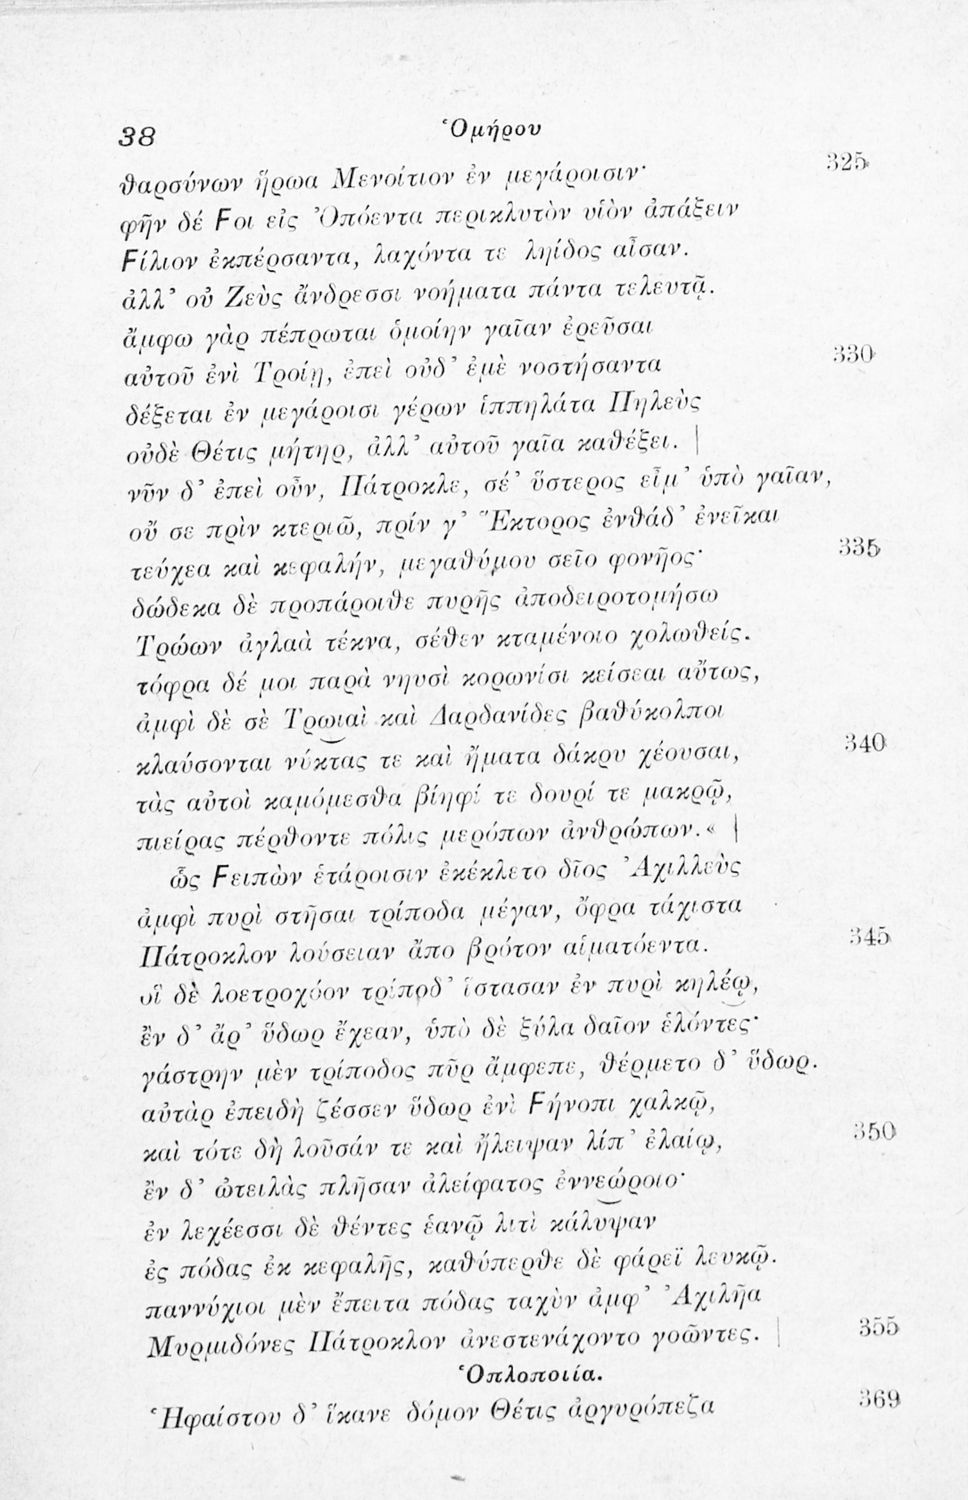 38 Ὁμήρου
θαρσύνων ἥρωα Μενοίτιον ἐν μεγάροισιν· 325
φῆν δέ Ϝοι εἰς Ὀπόεντα περικλυτὸν υἱὸν ἀπάξειν
Ϝίλιον ἐκπέρσαντα, λαχόντα τε ληίδος αἶσαν.
ἀλλ’ οὐ Ζεὺς ἄνδρεσσι νοήματα πάντα τελευτᾷ.
ἄμφω γὰρ πέπρωται ὁμοίην γαῖαν ἐρεῦσαι
αὐτοῦ ἐνὶ Τροίῃ, ἐπεὶ οὐδ’ ἐμὲ νοστήσαντα 330
δέξεται ἐν μεγάροισι γέρων ἱππηλάτα Πηλεὺς
οὐδὲ Θέτις μήτηρ, ἀλλ’ αὐτοῦ γαῖα καθέξει. |
νῦν δ’ ἐπεὶ οὖν, Πάτροκλε, σέ’ ὕστερος εἶμ’ ὑπὸ γαῖαν,
οὔ σε πρὶν κτεριῶ, πρίν γ’ Ἕκτορος ἐνθάδ’ ἐνεῖκαι
τεύχεα καὶ κεφαλήν, μεγαθύμου σεῖο φονῆος· 335
δώδεκα δὲ προπάροιθε πυρῆς ἀποδειροτομήσω
Τρώων ἀγλαὰ τέκνα, σέθεν κταμένοιο χολωθείς.
τόφρα δέ μοι παρὰ νηυσὶ κορωνίσι κείσεαι αὔτως,
ἀμφὶ δὲ σὲ Τρωιαὶ καὶ Δαρδανίδες βαθύκολποι
κλαύσονται νύκτας τε καὶ ἤματα δάκρυ χέουσαι, 340
τὰς αὐτοὶ καμόμεσθα βίηφί τε δουρί τε μακρῷ,
πιείρας πέρθοντε πόλις μερόπων ἀνθρώπων.« |
ὣς Ϝειπὼν ἑτάροισιν ἐκέκλετο δῖος Ἀχιλλεὺς
ἀμφὶ πυρὶ στῆσαι τρίποδα μέγαν, ὄφρα τάχιστα
Πάτροκλον λούσειαν ἄπο βρότον αἱματόεντα. 345
οἳ δὲ λοετροχόον τρίποδ’ ἵστασαν ἐν πυρὶ κηλέῳ,
ἒν δ’ ἄρ’ ὕδωρ ἔχεαν, ὑπὸ δὲ ξύλα δαῖον ἑλόντες·
γάστρην μὲν τρίποδος πῦρ ἄμφεπε, θέρμετο δ’ ὕδωρ.
αὐτὰρ ἐπειδὴ ζέσσεν ὕδωρ ἐνὶ Ϝήνοπι χαλκῷ,
καὶ τότε δὴ λοῦσάν τε καὶ ἤλειψαν λίπ’ ἐλαίῳ, 350
ἒν δ’ ὠτειλὰς πλῆσαν ἀλείφατος ἐννεώροιο·
ἐν λεχέεσσι δὲ θέντες ἑανῷ λιτὶ κάλυψαν
ἐς πόδας ἐκ κεφαλῆς, καθύπερθε δὲ φάρεϊ λευκῷ.
παννύχιοι μὲν ἔπειτα πόδας ταχὺν ἀμφ’ Ἀχιλῆα
Μυρμιδόνες Πάτροκλον ἀνεστενάχοντο γοῶντες. | 355
Ὁπλοποιία.
Ἡφαίστου δ’ ἵκανε δόμον Θέτις ἀργυρόπεζα 369